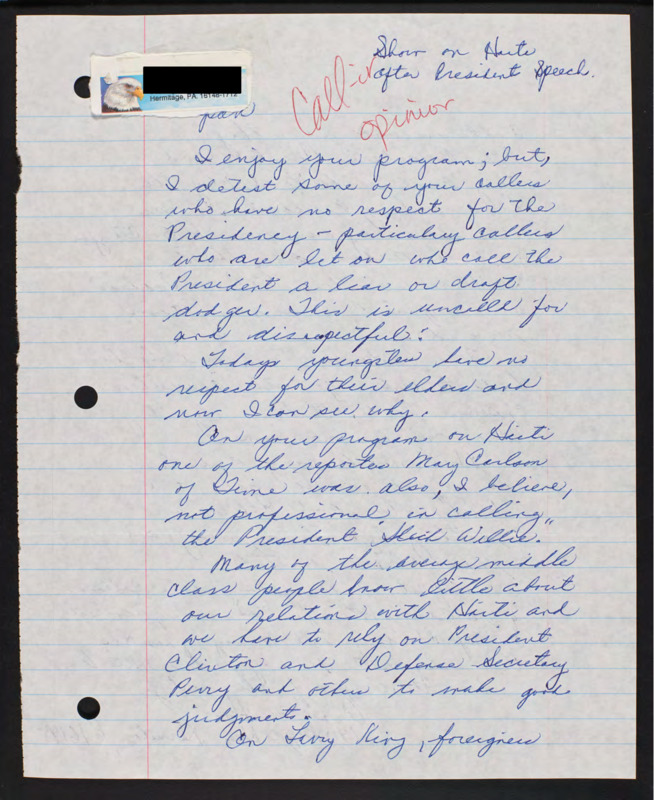 Show on Haiti
after President Speech.
Hermitage, PA. 16148-1712
Call-in
opinion
I enjoy your program; but,
I detest some of your callers
who have no respect for the
Presidency - particulary callers
who are let on who call the
President a liar or draft
dodger. This is uncalld for
and disrepectful!
Todays youngsters have no
respect for their elders and
now I can see why.
On your program on Haiti
one of the reporters Mary Carlson
of Time was also, I believe,
not professional in calling
the President "Slick Willie."
Many of the average middle
class people know little about
our relations with Haiti and
we have to rely on President
Clinton and Defense Secretary
Perry and others to make good
judgments.
On Larry King, foreigners